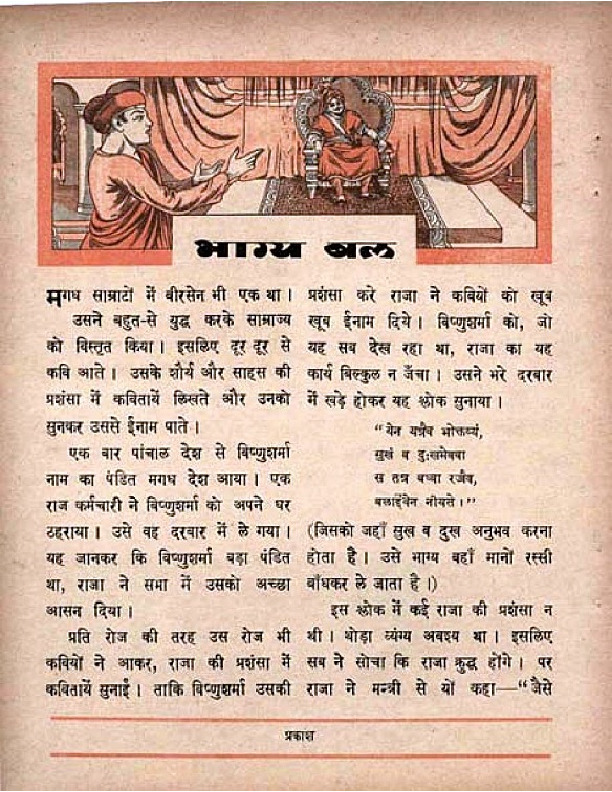 भाग्य बल
मगध साम्राटों में वीरसेन भी एक था ।
उसने बहुत-से युद्ध करके साम्राज्य
को विस्तृत किया । इसलिए दूर दूर से
कवि आते । उसके शौर्य और साहस की
प्रशंसा में कवितायें लिखते और उनको
सुनकर उससे ईनाम पाते ।
एक बार पांचाल देश से विष्णुशर्मा
नाम का पंडित मगध देश आया । एक
राज कर्मचारी ने विष्णुशर्मा को अपने घर
ठहराया । उसे वह दरबार में ले गया ।
यह जानकर कि विष्णुशर्मा बड़ा पंडित
था, राजा ने सभा में उसको अच्छा
आसन दिया ।
प्रति रोज की तरह उस रोज भी
कवियों ने आकर, राजा की प्रशंसा में
कवितायें सुनाईं । ताकि विष्णुशर्मा उसकी
प्रशंसा करे राजा ने कवियों को खूब
खूब ईनाम दिये । विष्णुशर्मा को, जो
यह सब देख रहा था, राजा का यह
कार्य बिल्कुल न जँचा । उसने भरे दरबार
में खड़े होकर यह श्लोक सुनाया ।
“येन यत्रैव भोक्तव्यं,
सुखं व दुःखमेववा
स तत्र बध्वा रजैव,
बलाद्दैवेन नीयते ।”
(जिसको जहाँ सुख व दुख अनुभव करना
होता है । उसे भाग्य वहाँ मानों रस्सी
बाँधकर ले जाता है ।)
इस श्लोक में कई राजा की प्रशंसा न
थी । थोड़ा व्यंग्य अवश्य था । इसलिए
सब ने सोचा कि राजा क्रुद्ध होंगे । पर
राजा ने मन्त्री से यों कहा—“जैसे
प्रकाश